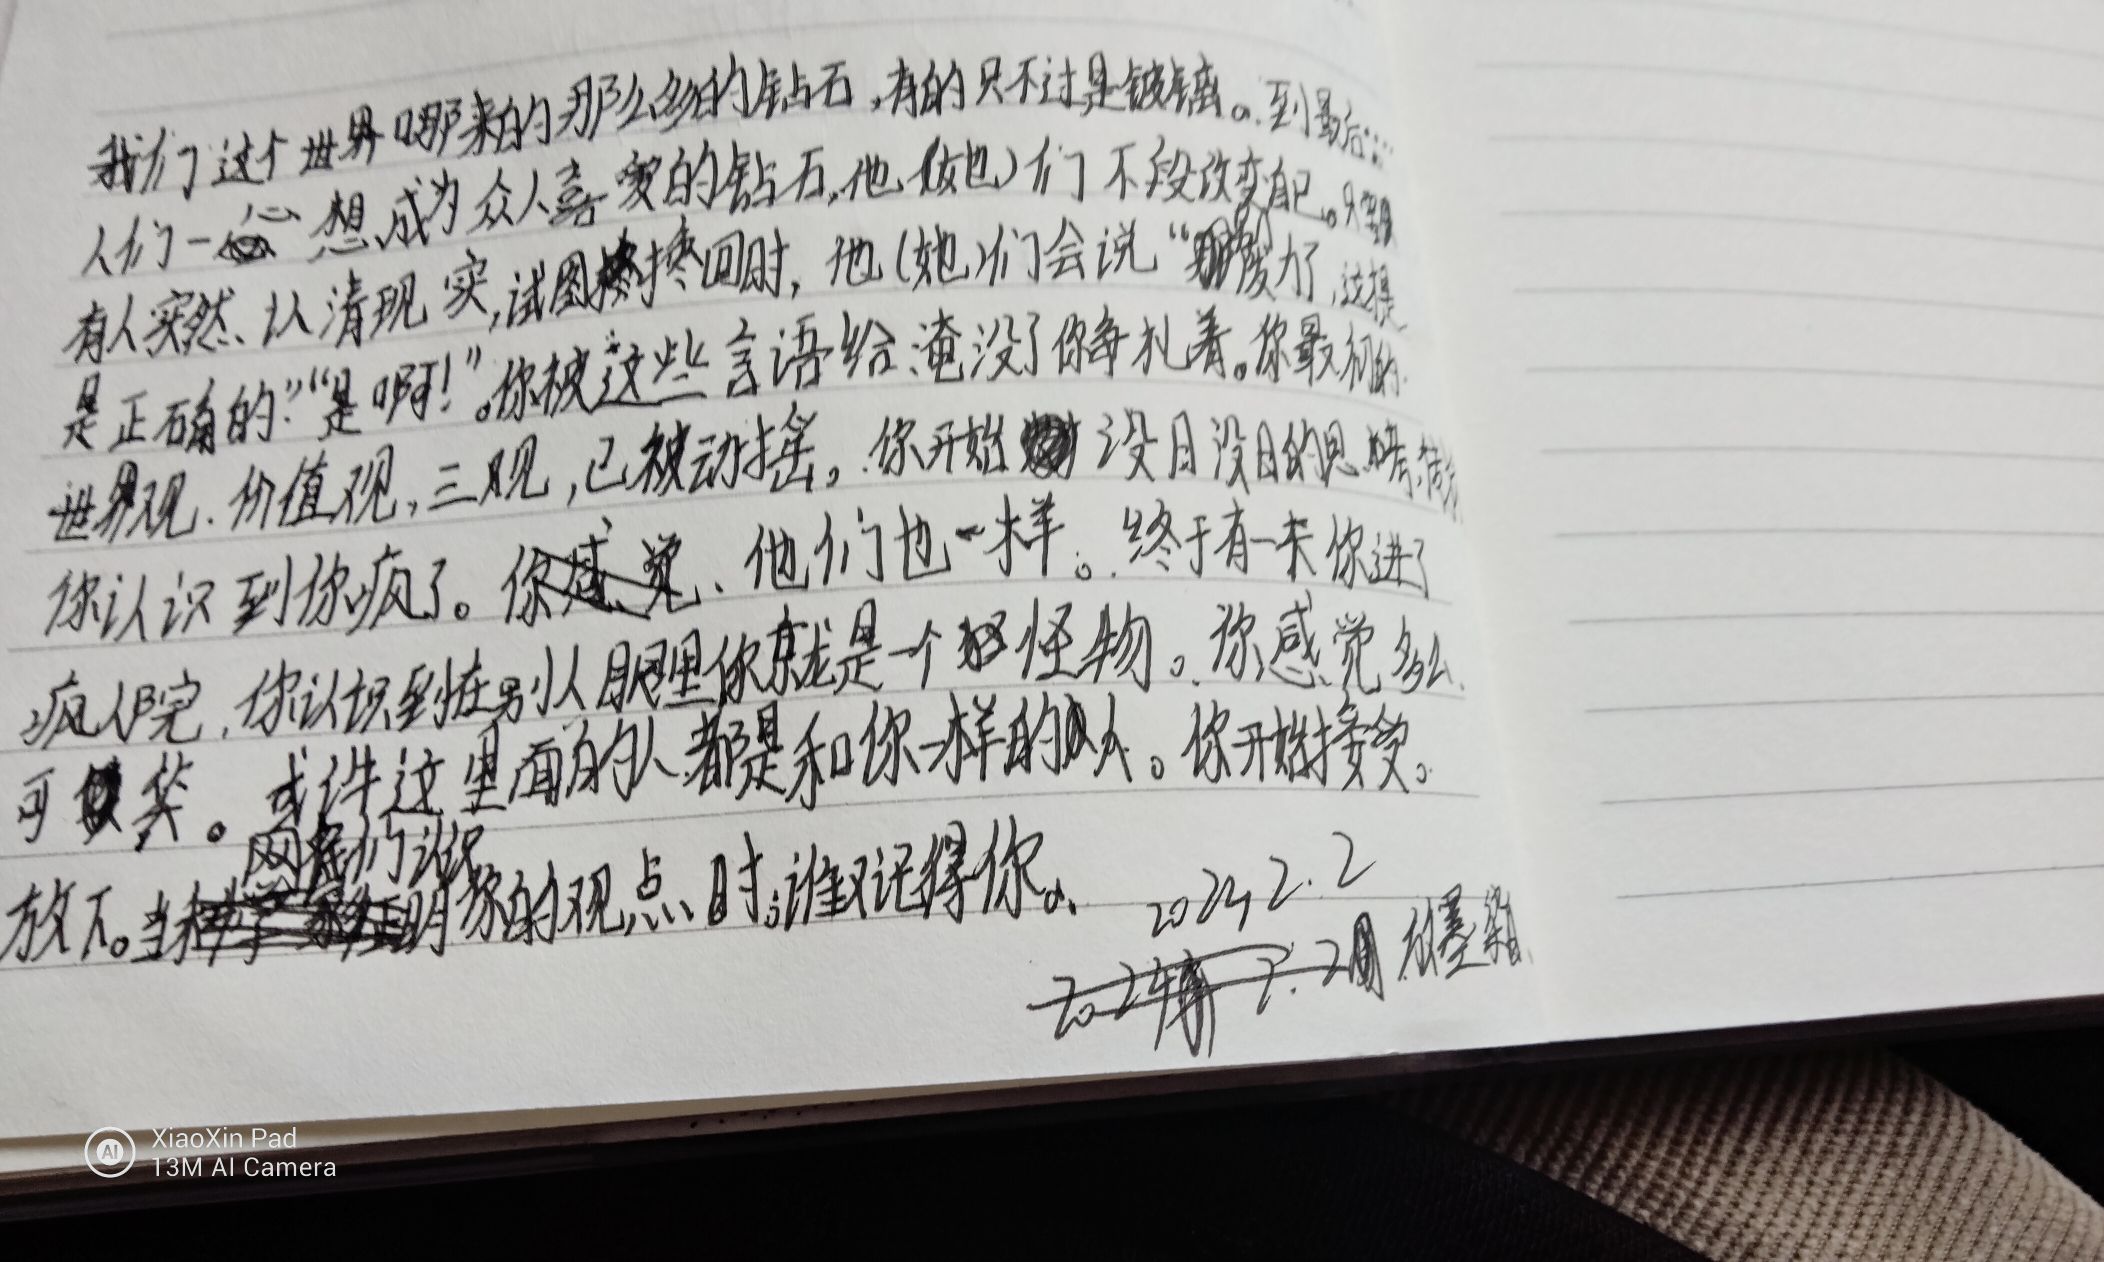 我们这个世界哪来的那么多的钻石,有的只不过是玻璃。到最后……
人们一心想成为众人喜爱的钻石,他(她)们不段改变自己。只要
有人突然、认清现实,试图拽回时,他(她)们会说“别废力了,这样
是正确的”“是啊!”。你被这些言语给淹没了你争扎着。你最初的
世界观.价值观,三观,已被动摇。你开始没日没日的思考,
你认识到你疯了。他们也一样。终于有一天你进了
疯人院,你认识到在别人眼里你就是一个怪物。你感觉多么
可笑。或许这里面的人都是和你一样的人。你开始接受。
网民们认识
放下。当你的观点时,谁又记得你。
2024,2.2
放墨
XiaoXin Pad
13M AI Camera